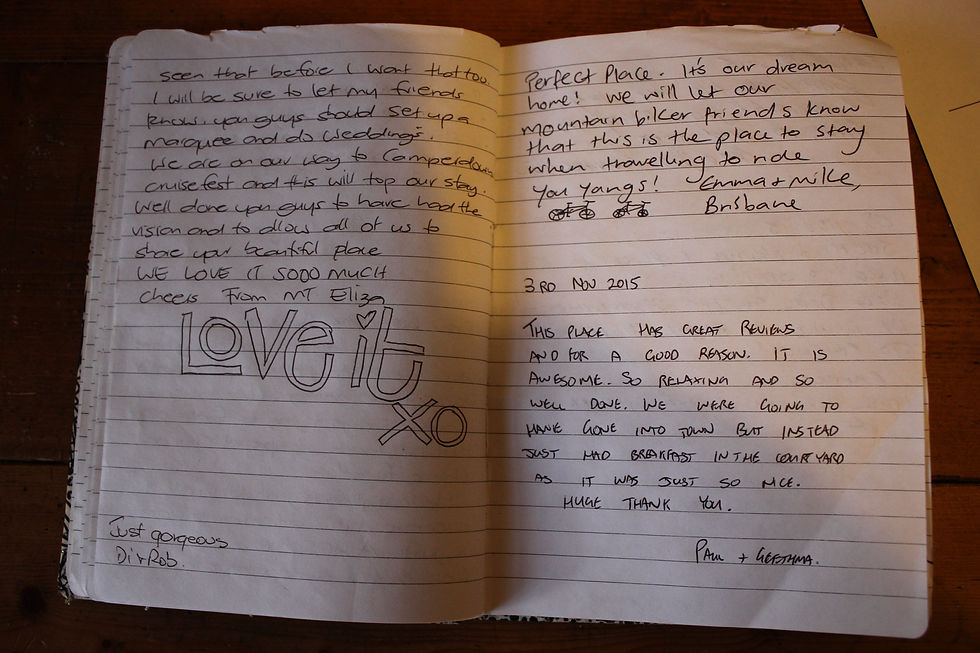 seen that before I want that too.
I will be sure to let my friends
know. you guys should set up a
marquee and do weddings.
We are on our way to Camperdown
cruisefest and this will top our stay.
Well done you guys to have had the
vision and to allow all of us to
share your beautiful place
WE LOVE IT SOOO MUCH
Cheers From MT Eliza
Love it
XO
Just gorgeous
Di + Rob.
Perfect Place. It's our dream
home! We will let our
mountain biker friends know
that this is the place to stay
when travelling to ride
You Yangs! Emma + Mike,
Brisbane
3RD NOV 2015
THIS PLACE HAS GREAT REVIEWS
AND FOR A GOOD REASON. IT IS
AWESOME. SO RELAXING AND SO
WELL DONE. WE WERE GOING TO
HAVE GONE INTO TOWN BUT INSTEAD
JUST HAD BREAKFAST IN THE COURTYARD
AS IT WAS JUST SO NICE.
HUGE THANK YOU.
PAUL +